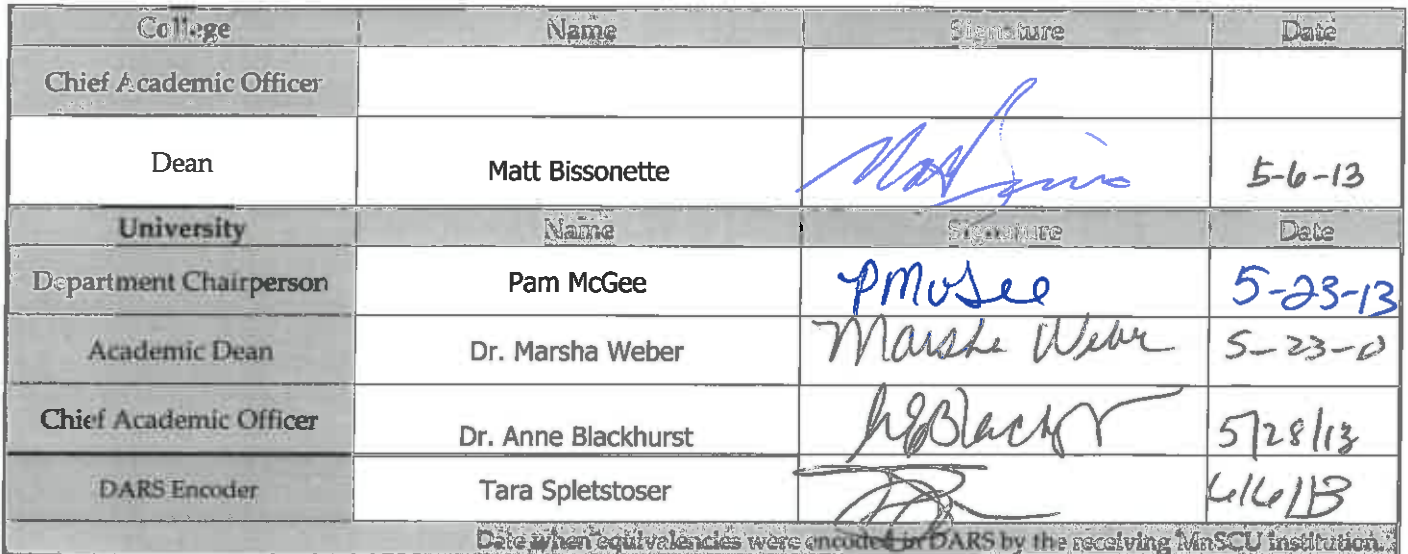 College Name Signature Date
Chief Academic Officer
Dean Matt Bissonette 5-6-13
University Name Signature Date
Department Chairperson Pam McGee PMcGee 5-23-13
Academic Dean Dr. Marsha Weber Marsha Weber 5-23-13
Chief Academic Officer Dr. Anne Blackhurst 5/28/13
DARS Encoder Tara Spletstoser 6/6/13
Date when equivalencies were encoded in DARS by the receiving MnSCU institution.